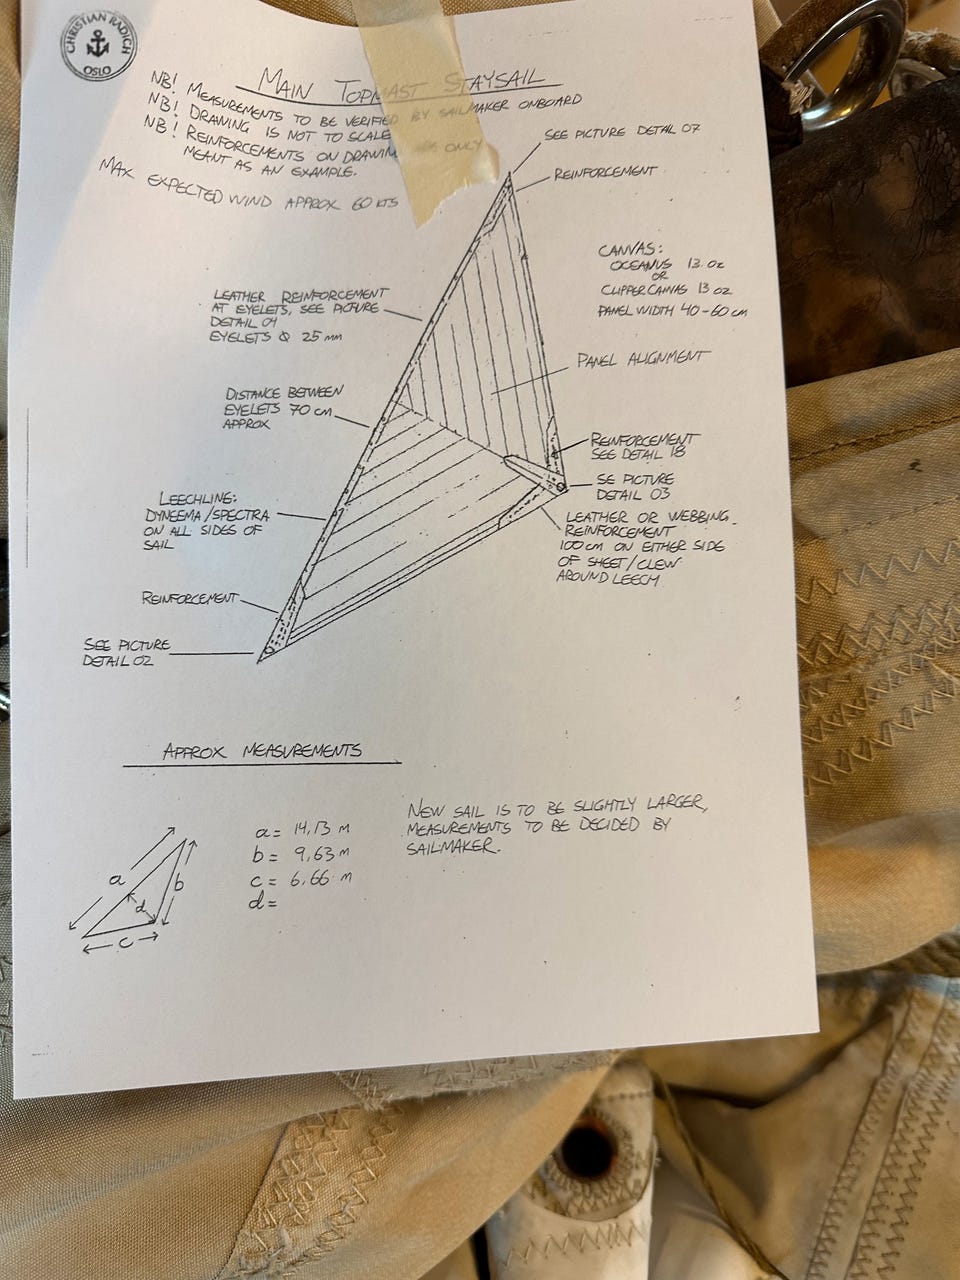 CHRISTIAN RADICH
OSLO
MAIN TOPMAST STAYSAIL
NB! MEASUREMENTS TO BE VERIFIED BY SAILMAKER ONBOARD
NB! DRAWING IS NOT TO SCALE
NB! REINFORCEMENTS ON DRAWING ARE ONLY
MEANT AS AN EXAMPLE.
MAX EXPECTED WIND APPROX 60 KTS
SEE PICTURE DETAIL 07
REINFORCEMENT
CANVAS:
OCEANUS 13 oz
OR
CLIPPER CANVAS 13 oz
PANEL WIDTH 40-60 cm
LEATHER REINFORCEMENT
AT EYELETS, SEE PICTURE
DETAIL 04
EYELETS Q 25 mm
PANEL ALIGNMENT
DISTANCE BETWEEN
EYELETS 70 cm
APPROX
REINFORCEMENT
SEE DETAIL 18
SE PICTURE
DETAIL 03
LEECHLINE:
DYNEEMA/SPECTRA
ON ALL SIDES OF
SAIL
LEATHER OR WEBBING
REINFORCEMENT
100cm ON EITHER SIDE
OF SHEET/CLEW
AROUND LEECH
REINFORCEMENT
SEE PICTURE
DETAIL 02
APPROX MEASUREMENTS
a
b
c
d
a= 14,13 m
b= 9,63 m
c= 6,66 m
d=
NEW SAIL IS TO BE SLIGHTLY LARGER,
MEASUREMENTS TO BE DECIDED BY
SAILMAKER.